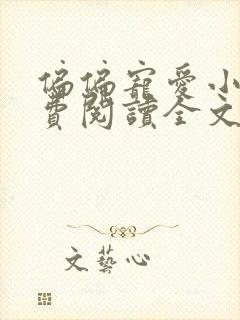 偏偏寵愛小
費閱讀全文
文藝心